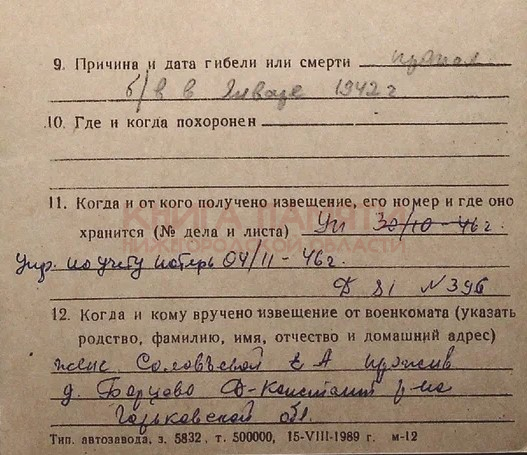 9. Причина и дата гибели или смерти пропал
б/в в Январе 1942 г
10. Где и когда похоронен
11. Когда и от кого получено извещение, его номер и где оно
хранится (№ дела и листа) Уп 30/10-46 г.
КНИГА ПАМЯТИ
НИЖЕГОРОДСКОЙ ОБЛАСТИ
Упр. по учету потерь 04/11-46 г.
Д 81 N 396
12. Когда и кому вручено извещение от военкомата (указать
родство, фамилию, имя, отчество и домашний адрес)
жене Соловьевой Е А прожив
д. Борцово Д-Констант р-на
Горьковской обл.
Тип. автозавода, з. 5832, т. 500000, 15-VIII-1989 г. м-12